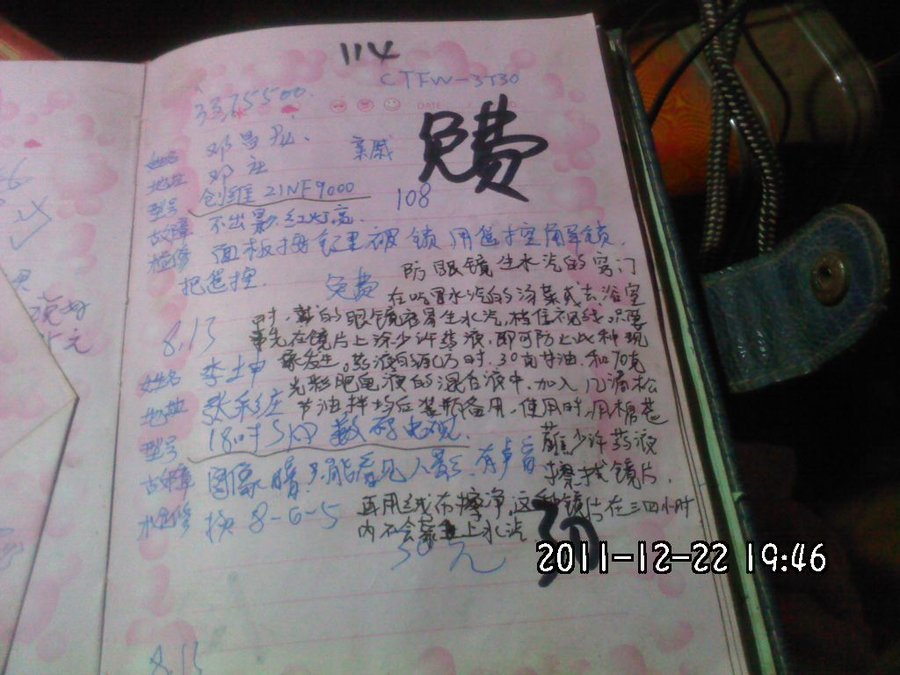 114
CTFW-3T30
3375500.
姓名 邓昌
亲戚
免费
地址 邓庄
型号 创维 21NF9000
108
故障 不出影 红灯亮.
检修 面板按钮里被锁 用遥控解锁.
把遥控
免费
防眼镜生水汽的窍门
在吃冒水汽的汤菜或去浴室
时, 戴的眼镜容易生水汽, 挡住视线, 只要
8.13
事先在镜片上涂少许药液, 即可防止此种现
象发生. 药液
时. 30克甘油. 和70克
姓名 李士中
肥皂液的混合液中, 加入几滴松
地址 张彩庄
节油拌均后装瓶备用, 使用时, 用棉卷
型号 18吋 数码电视.
蘸少许药液
故障 图象暗只能看见人影. 有声音
擦拭镜片.
检修 换 8-6-5
再用绒布擦净, 这种镜片在三四小时
内不会蒙上水汽
30元
30
2011-12-22 19:46
8.13
元